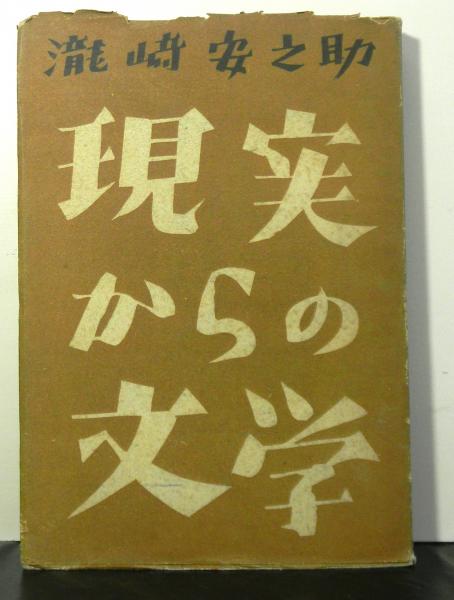 瀧崎安之助
現実
からの
文学